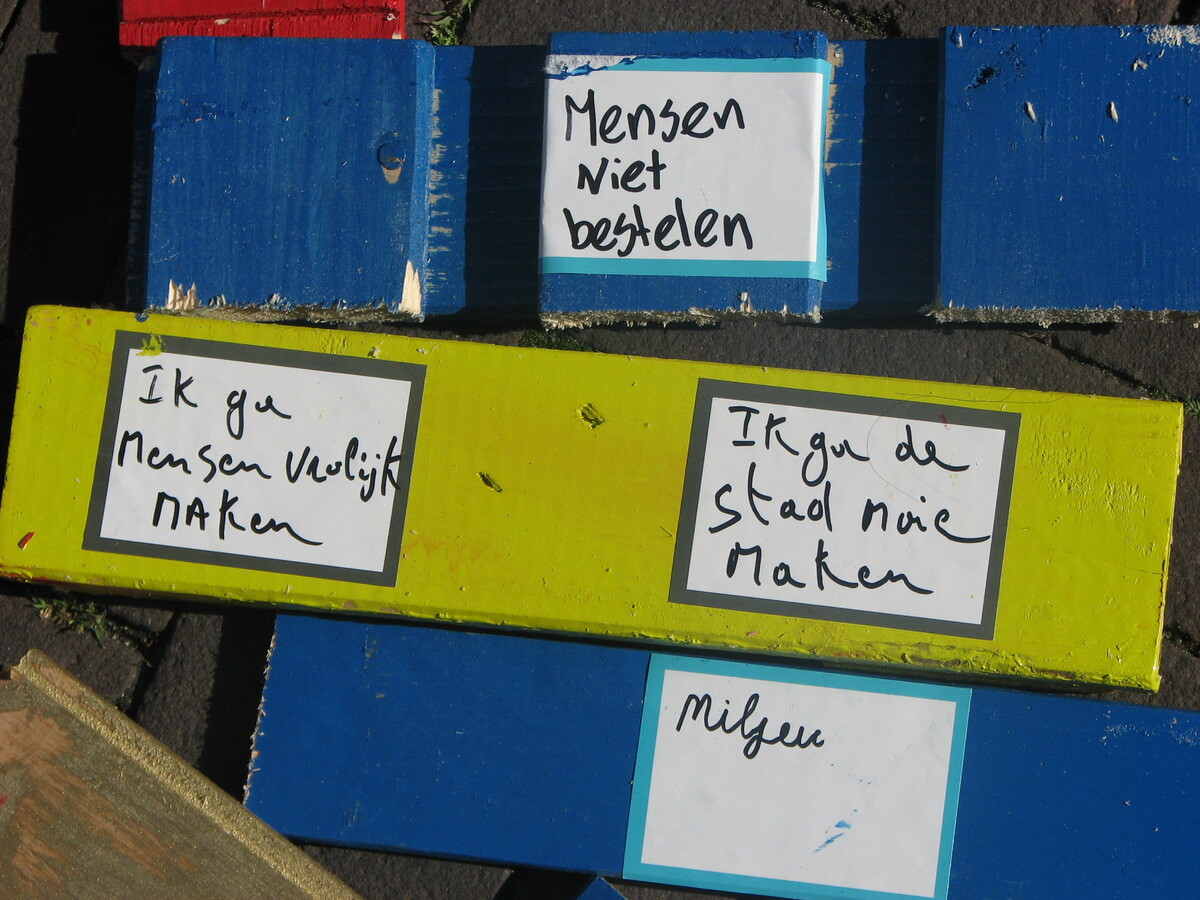 Mensen
Niet
bestelen
Ik ga
Mensen vrolijk
MAKen
Ik ga de
stad moie
Maken
Milieu